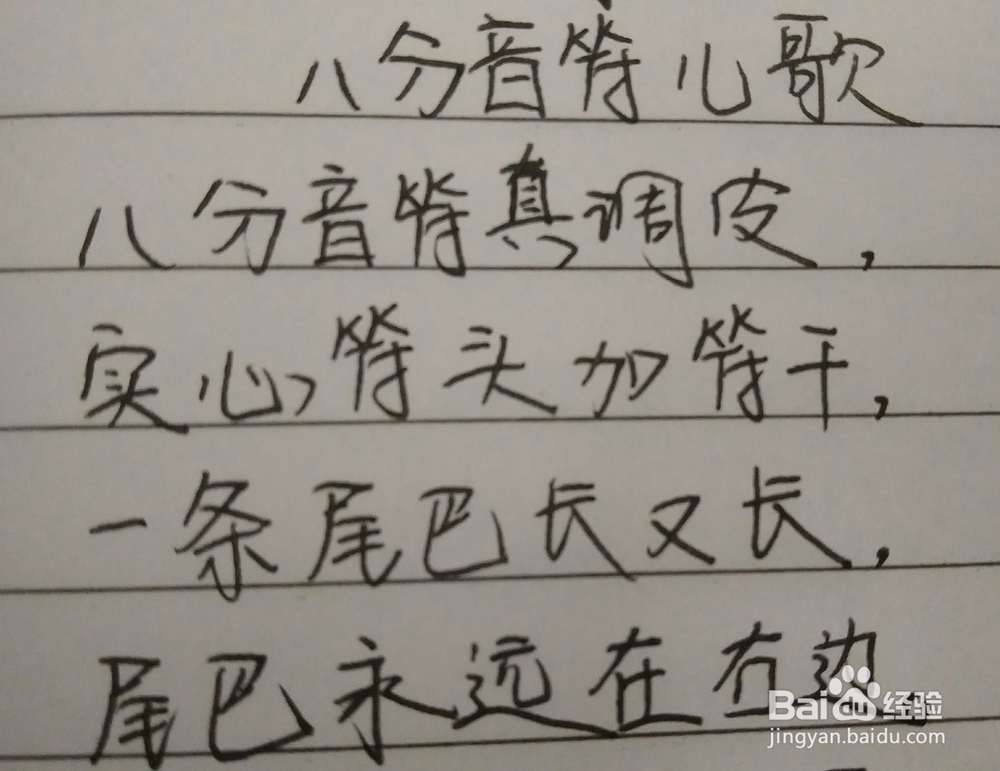 八分音符儿歌
八分音符真调皮，
实心符头加符干，
一条尾巴长又长，
尾巴永远在右边。
Baidu 经验
jingyan.baidu.com